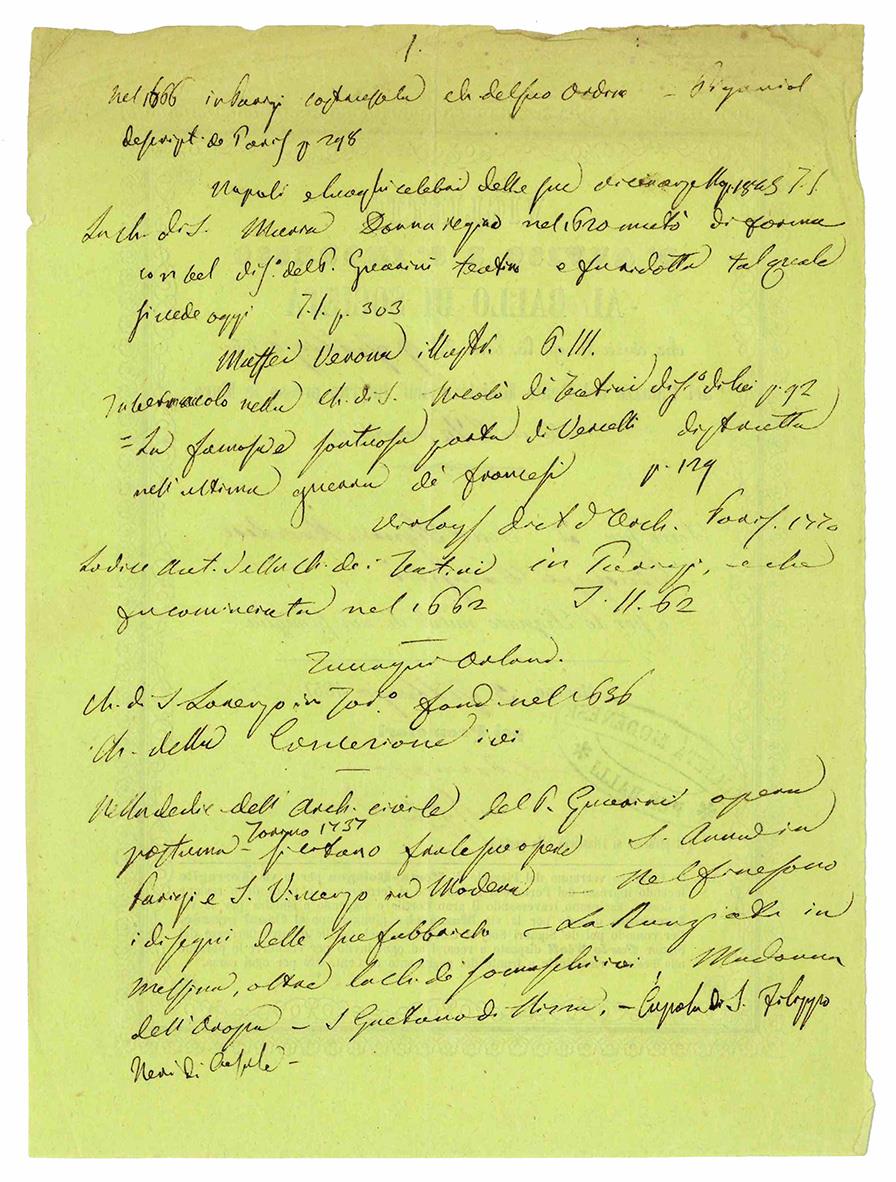 1.
nel 1666 in Parigi ch. del suo Ordine – Piganiol
descript. de Paris p 298
Napoli e luoghi celebri delle sue vicinanze Nap. 1845 T. I.
La ch. di S. Maria Donna regina nel 1620 mutò di forma
con bel dis.o del P. Guarini teatino e fu ridotta tal quale
si vede oggi T. I. p. 303
Maffei Verona illustr. P. III.
Tabernacolo nella Ch. di S. Nicolò de Teatini dis.o di lui p. 92
= La famosa e sontuosa porta di Vercelli distrutta
nell'ultima guerra de francesi p. 129
dict d'Arch. Paris. 1770
Lo dice Aut. della Ch. de i Teatini in Parigi, e che
fu cominciata nel 1662 T. II. 62
Orland.
Ch. di S Lorenzo in Tor.o fond. nel 1636
Ch. della Concezione ivi
Nella dedic. dell'Arch. civile del P. Guarini opera
postuma – Torino 1737 si citano fra le sue opere S. Anna in
Parigi e S. Vincenzo in Modena – Nel fine sono
i disegni delle sue fabbriche – La Nunziata in
Messina, oltre la ch. de somaschi ivi, Madonna
dell'Oropa – S Gaetano di Nizza, – Cupola di S. Filippo
Neri di Casale –
AL BALLO DI
MODENESE